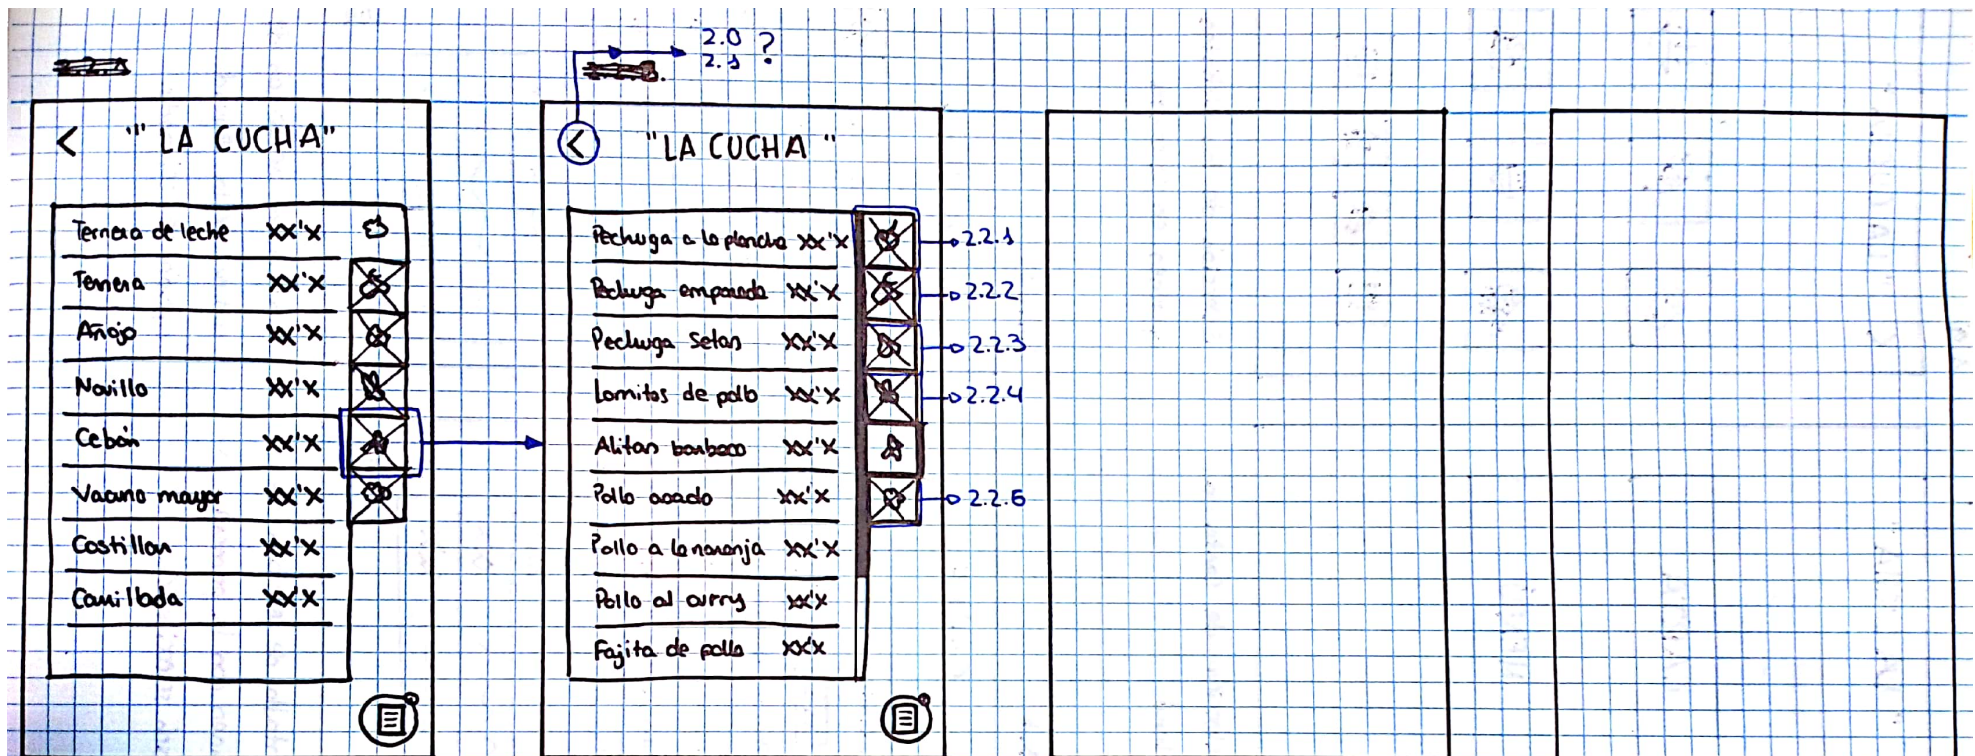 2.0 ?
2.1
< "" LA CUCHA"
Ternera de leche XX'X
Ternera XX'X
Añojo XX'X
Novillo XX'X
Cebón XX'X
Vacuno mayor XX'X
Costillar XX'X
Carrillada XX'X
< "LA CUCHA "
Pechuga a la plancha XX'X 2.2.1
Pechuga empanada XX'X 2.2.2
Pechuga Setas XX'X 2.2.3
Lomitos de pollo XX'X 2.2.4
Alitas barbacoa XX'X
Pollo asado XX'X 2.2.6
Pollo a la naranja XX'X
Pollo al curry XX'X
Fajita de pollo XX'X